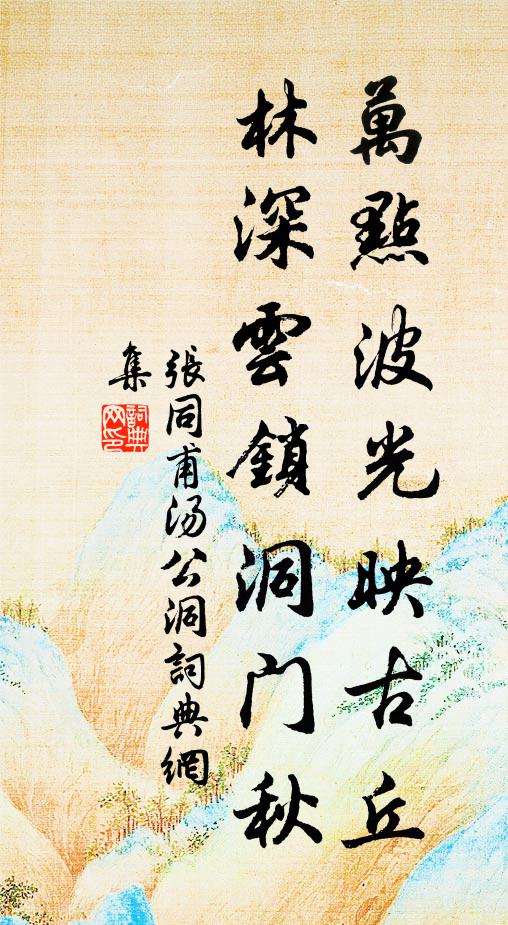 萬點波光映古丘
林深雲鎖洞门秋
張同甫汤公洞詞典網
集
詞典网印